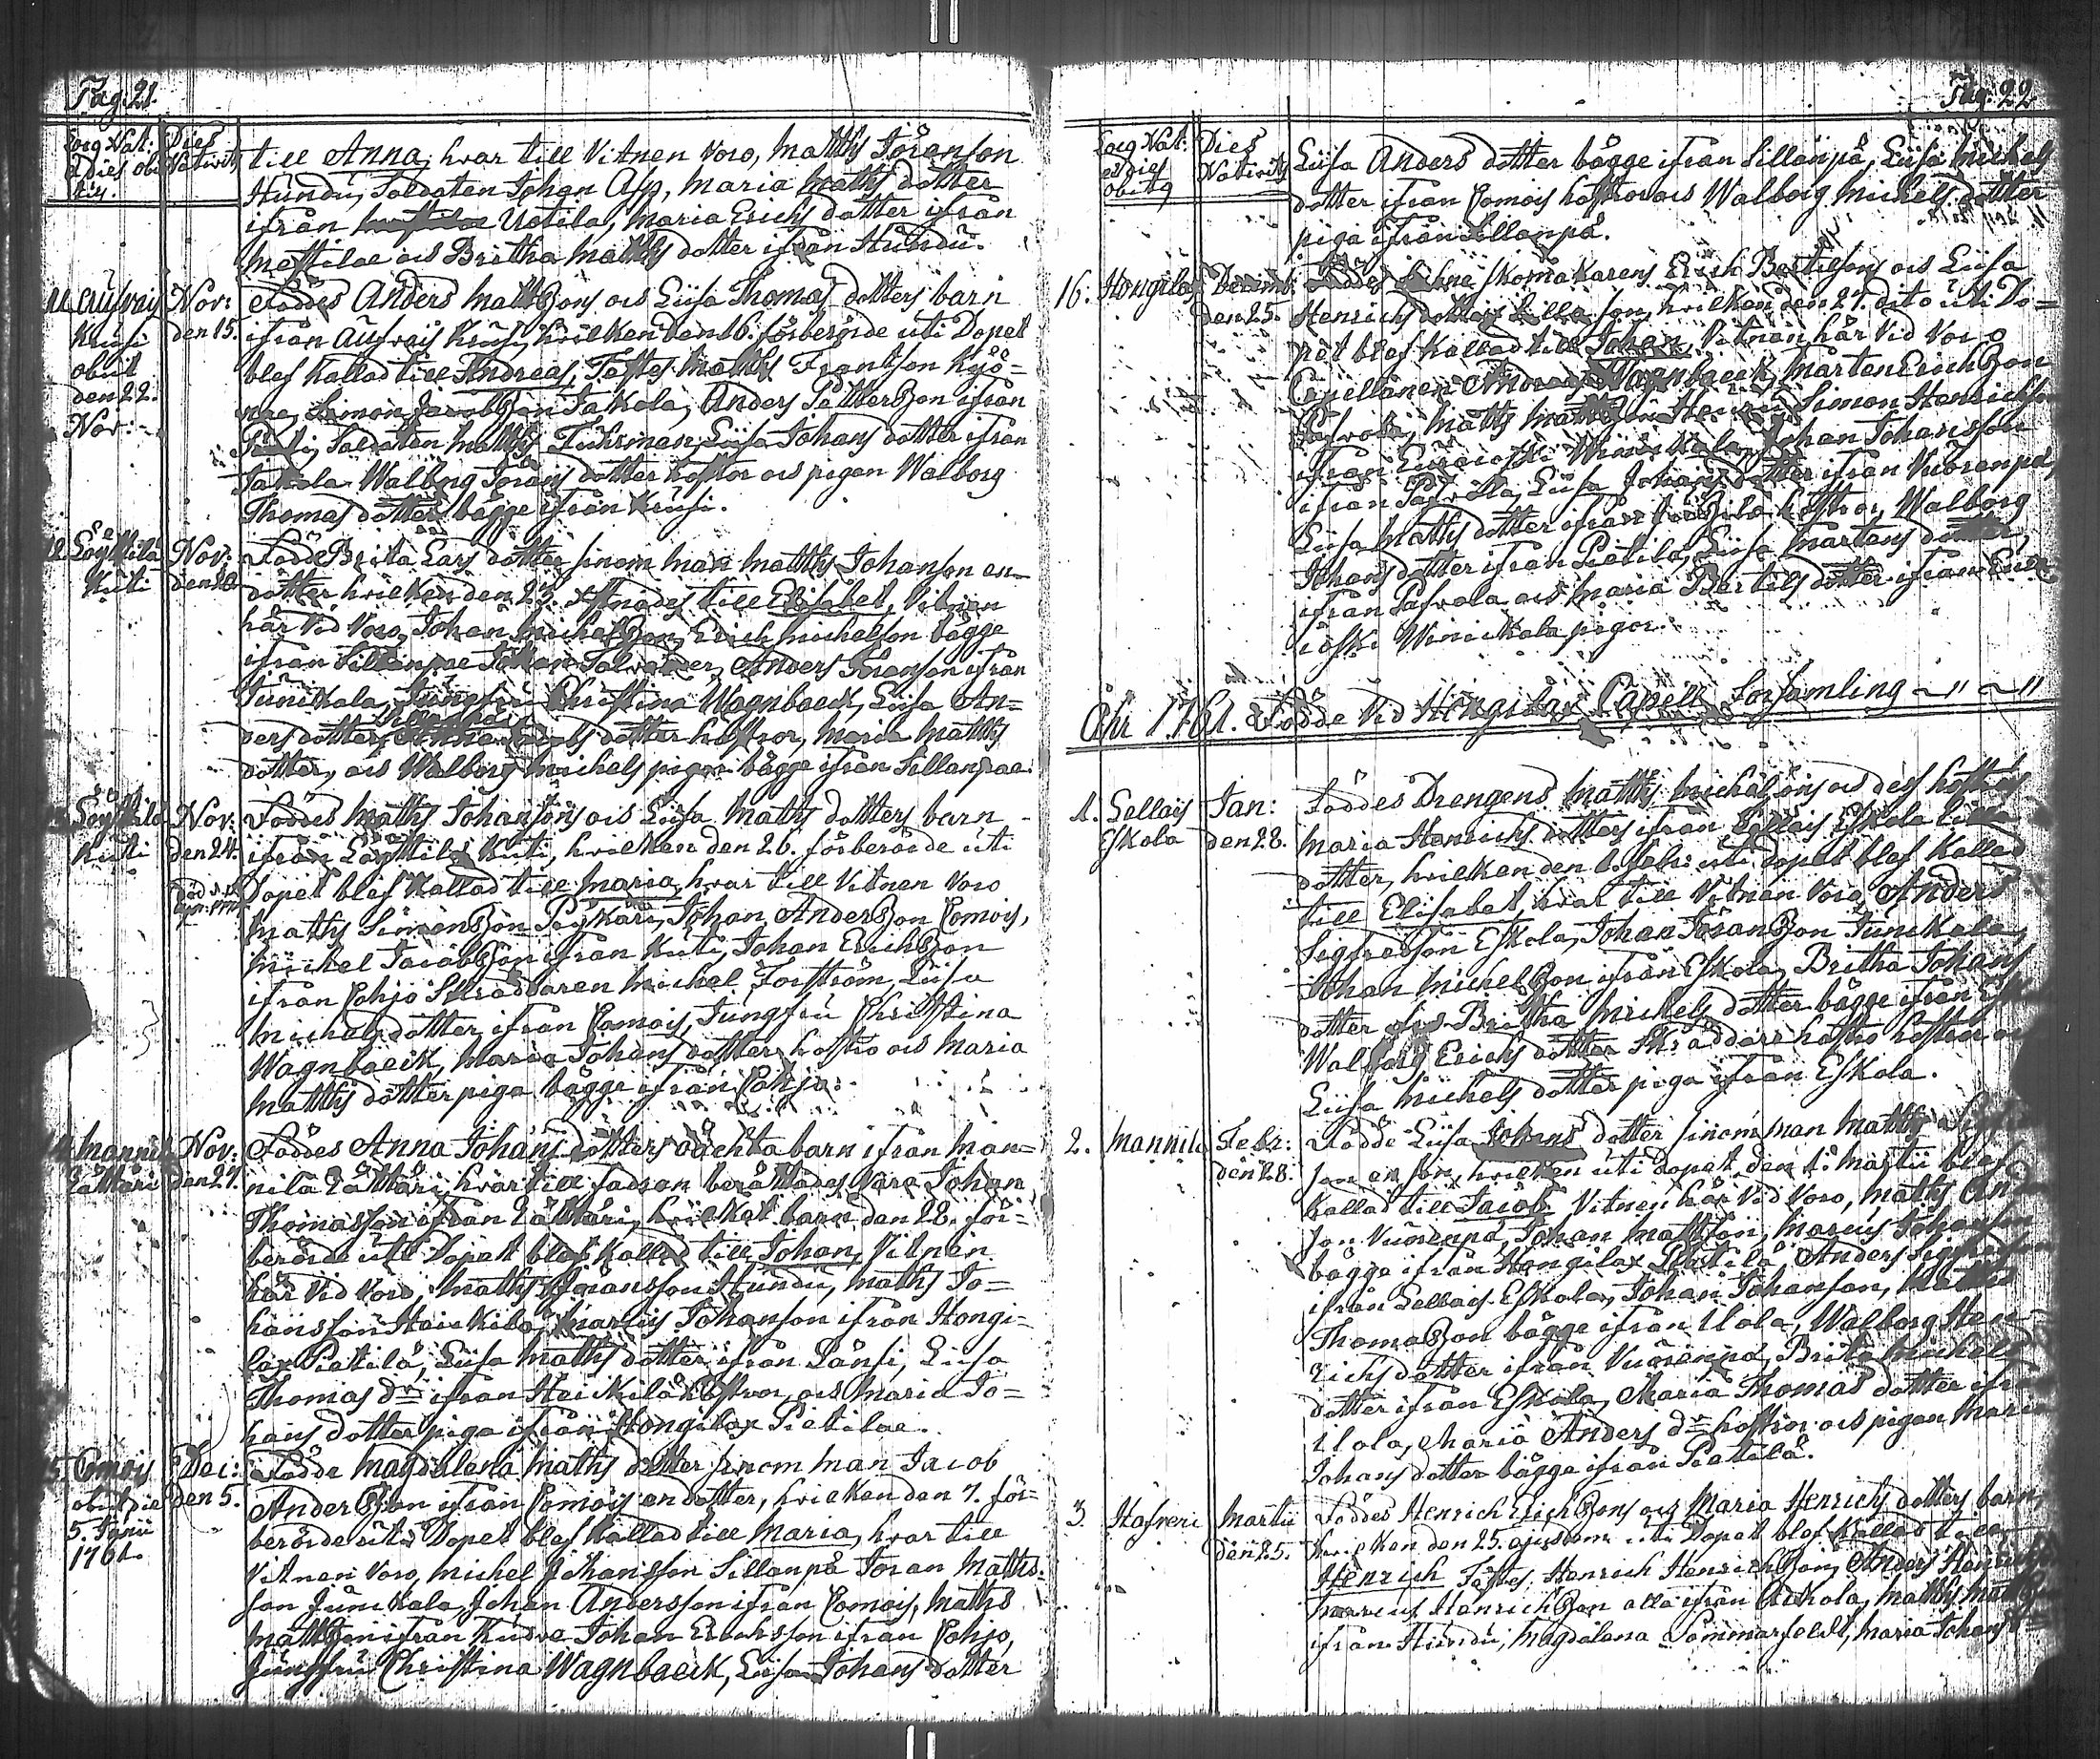 Pag. 21.
Locg Nat: Dies
et dies obi- Nativit
tus.
till Anna, hvar till Vitnen voro, Matths Jöranson
Hundu, Soldaten Johan Asp, Maria Maths dotter
ifrån Uotila, Maria Erichs dotter ifrån
Mettilae och Britha Matths dotter ifrån Hundu.
11. Aufvais Nov:
Krusi den 15.
obiit
den 22.
Nov:
Föddes Anders Mattszons och Liisa Thomas dotters barn
ifrån Aufvais Krusi, hvilken den 16. förberörde uti Dopet
blef kallad till Andreas, Testes Matths Frantsson Kyö-
Simon Jacobzon Takala, Anders Pättersson ifrån
Soldaten Matths Fuhrman, Liisa Johans dotter ifrån
Takala Walborg Jörans dotter hostror och pigan Walborg
Thomas dotter bägge ifrån Krusi.
12. Löyttilä Nov:
Kuti den 20
Födde Brita Lars dotter sinom man Matths Johanson en
dotter hvilken den 23. nämdes till Elisabet, Vitnen
här vid voro, Johan Michelsson, Erich Michelson bägge
ifrån Sillanpae Johan Anders Jöranson ifrån
Junikala, Jungfru Christina Wagnbaeck, Liisa An-
ders dotter dotter hostror, Maria Matths
dotter, och Walborg Michels pigor bägge ifrån Sillanpae.
13. Löyttilä Nov:
Kuti den 24.
Föddes Maths Johansons och Liisa Maths dotters barn
ifrån Löyttilä Kuti, hvilken den 26. förberörde uti
Dopet blef kallad till Maria, hvar till Vitnen voro
Maths Simonszon Pöykäri, Johan Anderszon Comois,
Michel Jacobsson ifrån Kuti, Johan Erichszon
ifrån Cohjo Skräddaren Michel Forsström, Liisa
Michels dotter ifrån Comois, Jungfru Christina
Wagnbaeck, Maria Johans dotter hostro och Maria
Matths dotter piga bägge ifrån Cohjo.
14. Mannila Nov:
Lättäri den 27.
Föddes Anna Johans dotters oächta barn ifrån Man-
nila Lättäri, hvar till fadren berättades vara Johan
Thomasson ifrån Lättäri, hvilket barn den 28. för-
berörde uti Dopet blef kallad till Johan, Vitnen
här vid voro, Maths Jöransson Hundu, Maths Jo-
hansson Heickilä, Marcus Johanson ifrån Hongi-
lax Pietilä, Liisa Maths dotter ifrån Länsi, Liisa
Thomas dr ifrån Heickilä hostror och Maria Jo-
hans dotter piga ifrån Hongilax Pietilae.
15. Comois Dec:
obiit die den 5.
5. Junii
1761.
Födde Magdalena Maths dotter sinom man Jacob
Anderszon ifrån Comois en dotter, hvilken den 7. för-
berörde uti Dopet blef kallad till Maria, hvar till
Vitnen voro, Michel Johansson Sillanpä Jöran Maths-
son Junikala, Johan Andersson ifrån Comois, Maths
Mattszon ifrån Kudva Johan Erichsson ifrån Cohjo,
Jungfru Christina Wagnbaeck, Liisa Johans dotter
Pag. 22
Locg Nat: Dies
et dies Nativit
obitq
Liisa Anders dotter bägge ifrån Sillanpä, Liisa Michels
dotter ifrån Comois hostror och Walborg Michels dotter
piga ifrån Sillanpä.
16. Hongilax Decemb:
den 25.
Föddes Sochne skomakarens Erich Bertilsons och Liisa
Henrichs dotters lilla son, hvilken den 27. dito uti Do-
pet blef kallad till Johan, Vitnen här vid voro
Capellanen Andreas Wagnbaeck, Mårten Erichszon
Pafvola, Matths Simon Henrichson
ifrån Johan Johansson
ifrån Pafvola, Liisa Johans dotter ifrån Vuorenpä,
Liisa Maths dotter ifrån hostror, Walborg
Johans dotter ifrån Pietilä, Liisa Mårtens dotter,
ifrån Pafvola och Maria Bertils dotter ifrån Eura-
ioski Winickala pigor.
Åhr 1761. Födde vid Hongilax Capell Församling
1. Sellais Jan:
Eskola den 28.
Föddes Drengens Matths Michelsons och dess hostros
Maria Henrichs dotters ifrån Sellais Eskola lilla
dotter, hvilken den 1. Febr: uti dopet blef kallad
till Elisabet, hvar till Vitnen voro Anders
Sigfredsson Eskola, Johan Jöranszon Junikala,
Johan Michelszon ifrån Eskola, Britha Johans
dotter Britha Michels dotter bägge ifrån
Walborg Erichs dotter skräddare hostro hostror
Liisa Michels dotter piga ifrån Eskola.
2. Mannila Febr:
den 28.
Födde Liisa Johans dotter sinom man Matths
son en son, hvilken uti dopet den 1. Martii blef
kallad till Jacob, Vitnen här vid voro, Maths An-
son Vuorenpä, Johan Mattsson, Marcus Johanson
bägge ifrån Hongilax Pietilä Anders
ifrån Sellais Eskola, Johan Johanson,
Thomaszon bägge ifrån Ulola, Walborg Hen-
richs dotter ifrån Vuorenpä, Brita Michels
dotter ifrån Eskola, Maria Thomas dotter
Ulola, Maria Anders dr hostror och pigan Maria
Johans dotter bägge ifrån Pietilä.
3. Hafveri Martii
den 25.
Föddes Henrich Erichszons och Maria Henrichs dotters barn,
hvilken den 25. ejusdem uti Dopet blef kallad till
Henrich Testes, Henrich Henrichszon, Anders
Marcus Henrichszon alla ifrån Matths
ifrån Hundu, Magdalena Sommarfeldt, Maria Johans